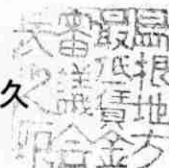 島根地方
最低賃金
審議会
長之印
久